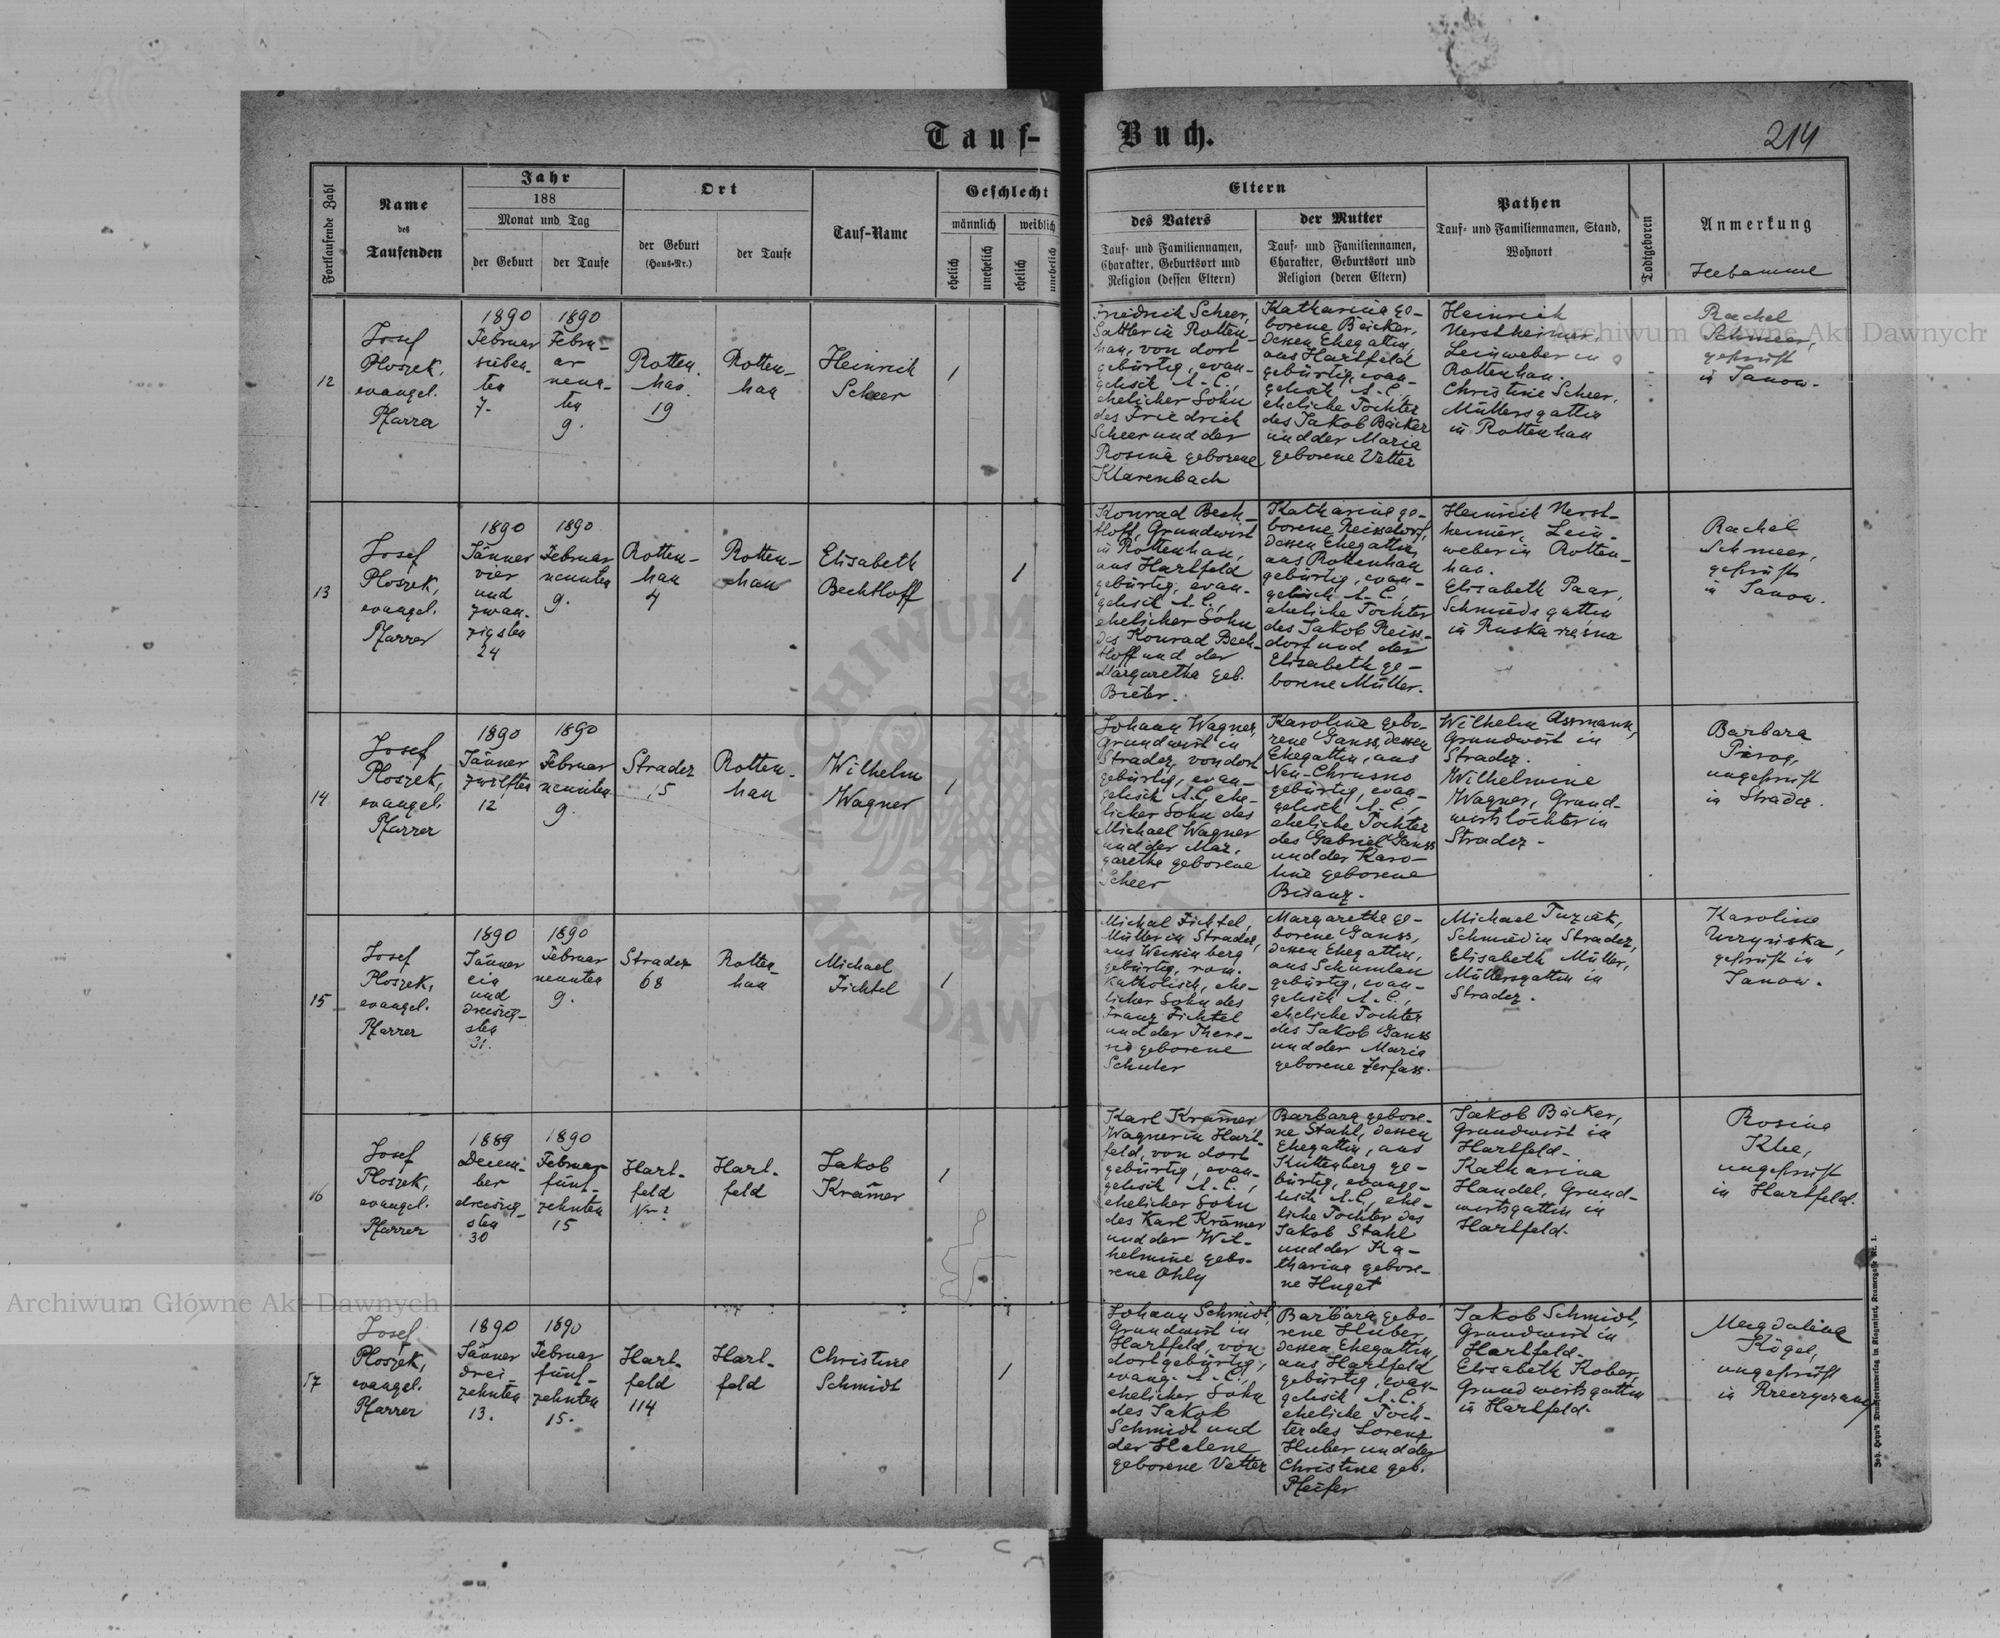 Tauf-Buch.
214
Fortlaufende Zahl
Name
des
Taufenden
Jahr
188
Monat und Tag
der Geburt
der Taufe
Ort
der Geburt
(Haus-Nr.)
der Taufe
Tauf-Name
Geschlecht
männlich
weiblich
ehelich
unehelich
ehelich
unehelich
Eltern
des Vaters
Tauf- und Familiennamen,
Charakter, Geburtsort und
Religion (dessen Eltern)
der Mutter
Tauf- und Familiennamen,
Charakter, Geburtsort und
Religion (deren Eltern)
Pathen
Tauf- und Familiennamen, Stand,
Wohnort
Todtgeboren
Anmerkung
Hebamme
12
Josef
Ploszek,
evangel.
Pfarrer
1890
Februar
sieben-
ten
7.
1890
Febru-
ar
neun-
ten
9.
Rotten-
han
19
Rotten-
han
Heinrich
Scheer
1
Friedrich Scheer,
Sattler in Rotten-
han, von dort
gebürtig, evan-
gelisch A.C.,
ehelicher Sohn
des Friedrich
Scheer und der
Rosina geborene
Klarenbach
Katharina ge-
borene Bäcker,
dessen Ehegattin,
aus Hartfeld
gebürtig, evan-
gelisch A.C.,
eheliche Tochter
des Jakob Bäcker
und der Maria
geborene Vetter
Heinrich
Nerstheimer,
Leinweber in
Rottenhan.
Christine Scheer,
Müllersgattin
in Rottenhan
Rachel
Schmeer,
geprüft
in Janow.
13
Josef
Ploszek,
evangel.
Pfarrer
1890
Jänner
vier
und
zwan-
zigsten
24
1890
Februar
neunten
9.
Rotten-
han
4
Rotten-
han
Elisabeth
Bechtloff
1
Konrad Bech-
tloff, Grundwirt
in Rottenhan,
aus Hartfeld
gebürtig, evan-
gelisch A.C.,
ehelicher Sohn
des Konrad Bech-
tloff und der
Margaretha geb.
Bieber.
Katharina ge-
borene Reissdorf,
dessen Ehegattin,
aus Rottenhan
gebürtig, evan-
gelisch A.C.,
eheliche Tochter
des Jakob Reiss-
dorf und der
Elisabeth ge-
borene Müller.
Heinrich Nerst-
heimer, Lein-
weber in Rotten-
han.
Elisabeth Paar,
Schmiedsgattin
in
Rachel
Schmeer,
geprüft
in Janow.
14
Josef
Ploszek,
evangel.
Pfarrer
1890
Jänner
zwölften
12
1890
Februar
neunten
9.
Stradez
15
Rotten-
han
Wilhelm
Wagner
1
Johann Wagner,
Grundwirt in
Stradez, von dort
gebürtig, evan-
gelisch A.C., ehe-
licher Sohn des
Michael Wagner
und der Mar-
garetha geborene
Scheer
Karolina gebo-
rene Ganss, dessen
Ehegattin, aus
Neu-Chrusno
gebürtig, evan-
gelisch A.C.,
eheliche Tochter
des Gabriel Ganss
und der Karo-
line geborene
Bisanz.
Wilhelm Assmann,
Grundwirt in
Stradez.
Wilhelmine
Wagner, Grund-
wirtstochter in
Stradez.
Barbara
Pirog,
ungeprüft
in Stradez.
15
Josef
Ploszek,
evangel.
Pfarrer
1890
Jänner
ein
und
dreissig-
sten
31.
1890
Februar
neunten
9.
Stradez
68
Rotten-
han
Michael
Fichtel
1
Michal Fichtel,
Müller in Stradez,
aus Weissenberg
gebürtig, rom.
katholisch, ehe-
licher Sohn des
Franz Fichtel
und der There-
sia geborene
Schuler
Margaretha ge-
borene Ganss,
dessen Ehegattin,
aus Schumlau
gebürtig, evan-
gelisch A.C.,
eheliche Tochter
des Jakob Ganss
und der Maria
geborene Zerfass.
Michael Tuziak,
Schmied in Stradez,
Elisabeth Müller,
Müllersgattin in
Stradez.
Karoline
geprüft in
Janow.
16
Josef
Ploszek,
evangel.
Pfarrer
1889
Dezem-
ber
dreissig-
sten
30
1890
Februar
fünf-
zehnten
15
Hart-
feld
Nr ?
Hart-
feld
Jakob
Krämer
1
Karl Krämer,
Wagner in Hart-
feld, von dort
gebürtig, evan-
gelisch A.C.,
ehelicher Sohn
des Karl Krämer
und der Wil-
helmine gebo-
rene Ohly
Barbara gebore-
ne Stahl, dessen
Ehegattin, aus
Kuttenberg ge-
bürtig, evange-
lisch A.C., ehe-
liche Tochter des
Jakob Stahl
und der Ka-
tharina gebore-
ne Huget
Jakob Bäcker,
Grundwirt in
Hartfeld.
Katharina
Handel, Grund-
wirtsgattin in
Hartfeld.
Rosina
Klee,
ungeprüft
in Hartfeld.
17
Josef
Ploszek,
evangel.
Pfarrer
1890
Jänner
drei-
zehnten
13.
1890
Februar
fünf-
zehnten
15.
Hart-
feld
114
Hart-
feld
Christine
Schmidt
1
Johann Schmidt,
Grundwirt in
Hartfeld, von
dort gebürtig,
evang. A.C.,
ehelicher Sohn
des Jakob
Schmidt und
der Helene
geborene Vetter
Barbara gebo-
rene Huber,
dessen Ehegattin,
aus Hartfeld
gebürtig, evan-
gelisch A.C.,
eheliche Toch-
ter des Lorenz
Huber und der
Christine geb.
Pfeifer
Jakob Schmidt,
Grundwirt in
Hartfeld.
Elisabeth Kober,
Grundwirtsgattin
in Hartfeld.
Magdalena
Kögel,
ungeprüft
in
Archiwum Główne Akt Dawnych
Archiwum Główne Akt Dawnych
ARCHIWUM
AKT DAWNYCH